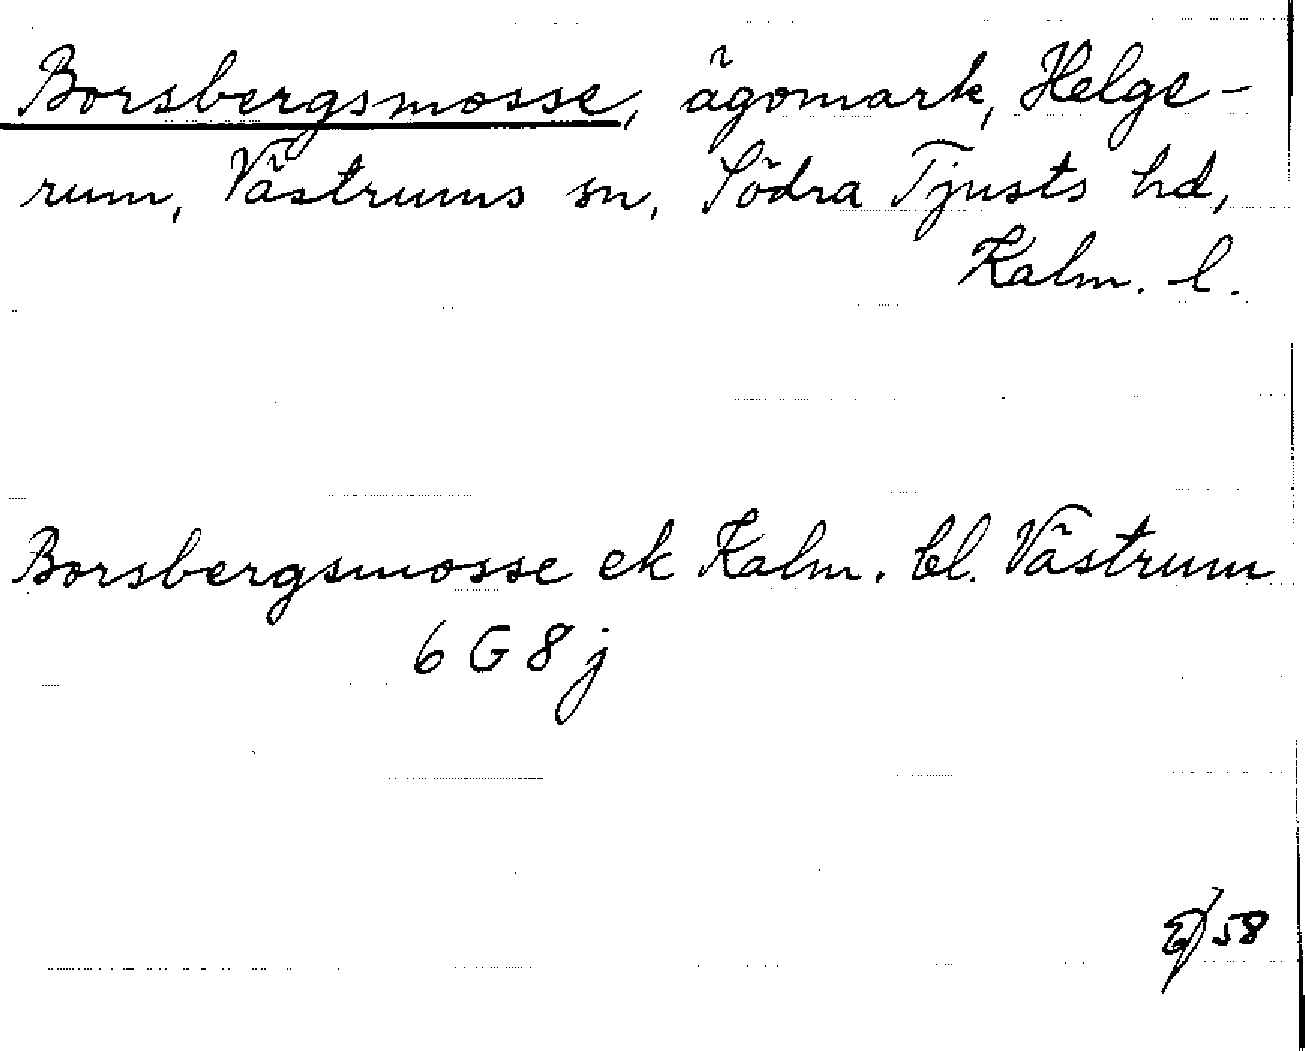 Borsbergsmosse, ägomark, Helge-
rum, Västrums sn, Södra Tjusts hd,
Kalm. l.
Borsbergsmosse ek Kalm. bl. Västrum
6 G 8 j
58